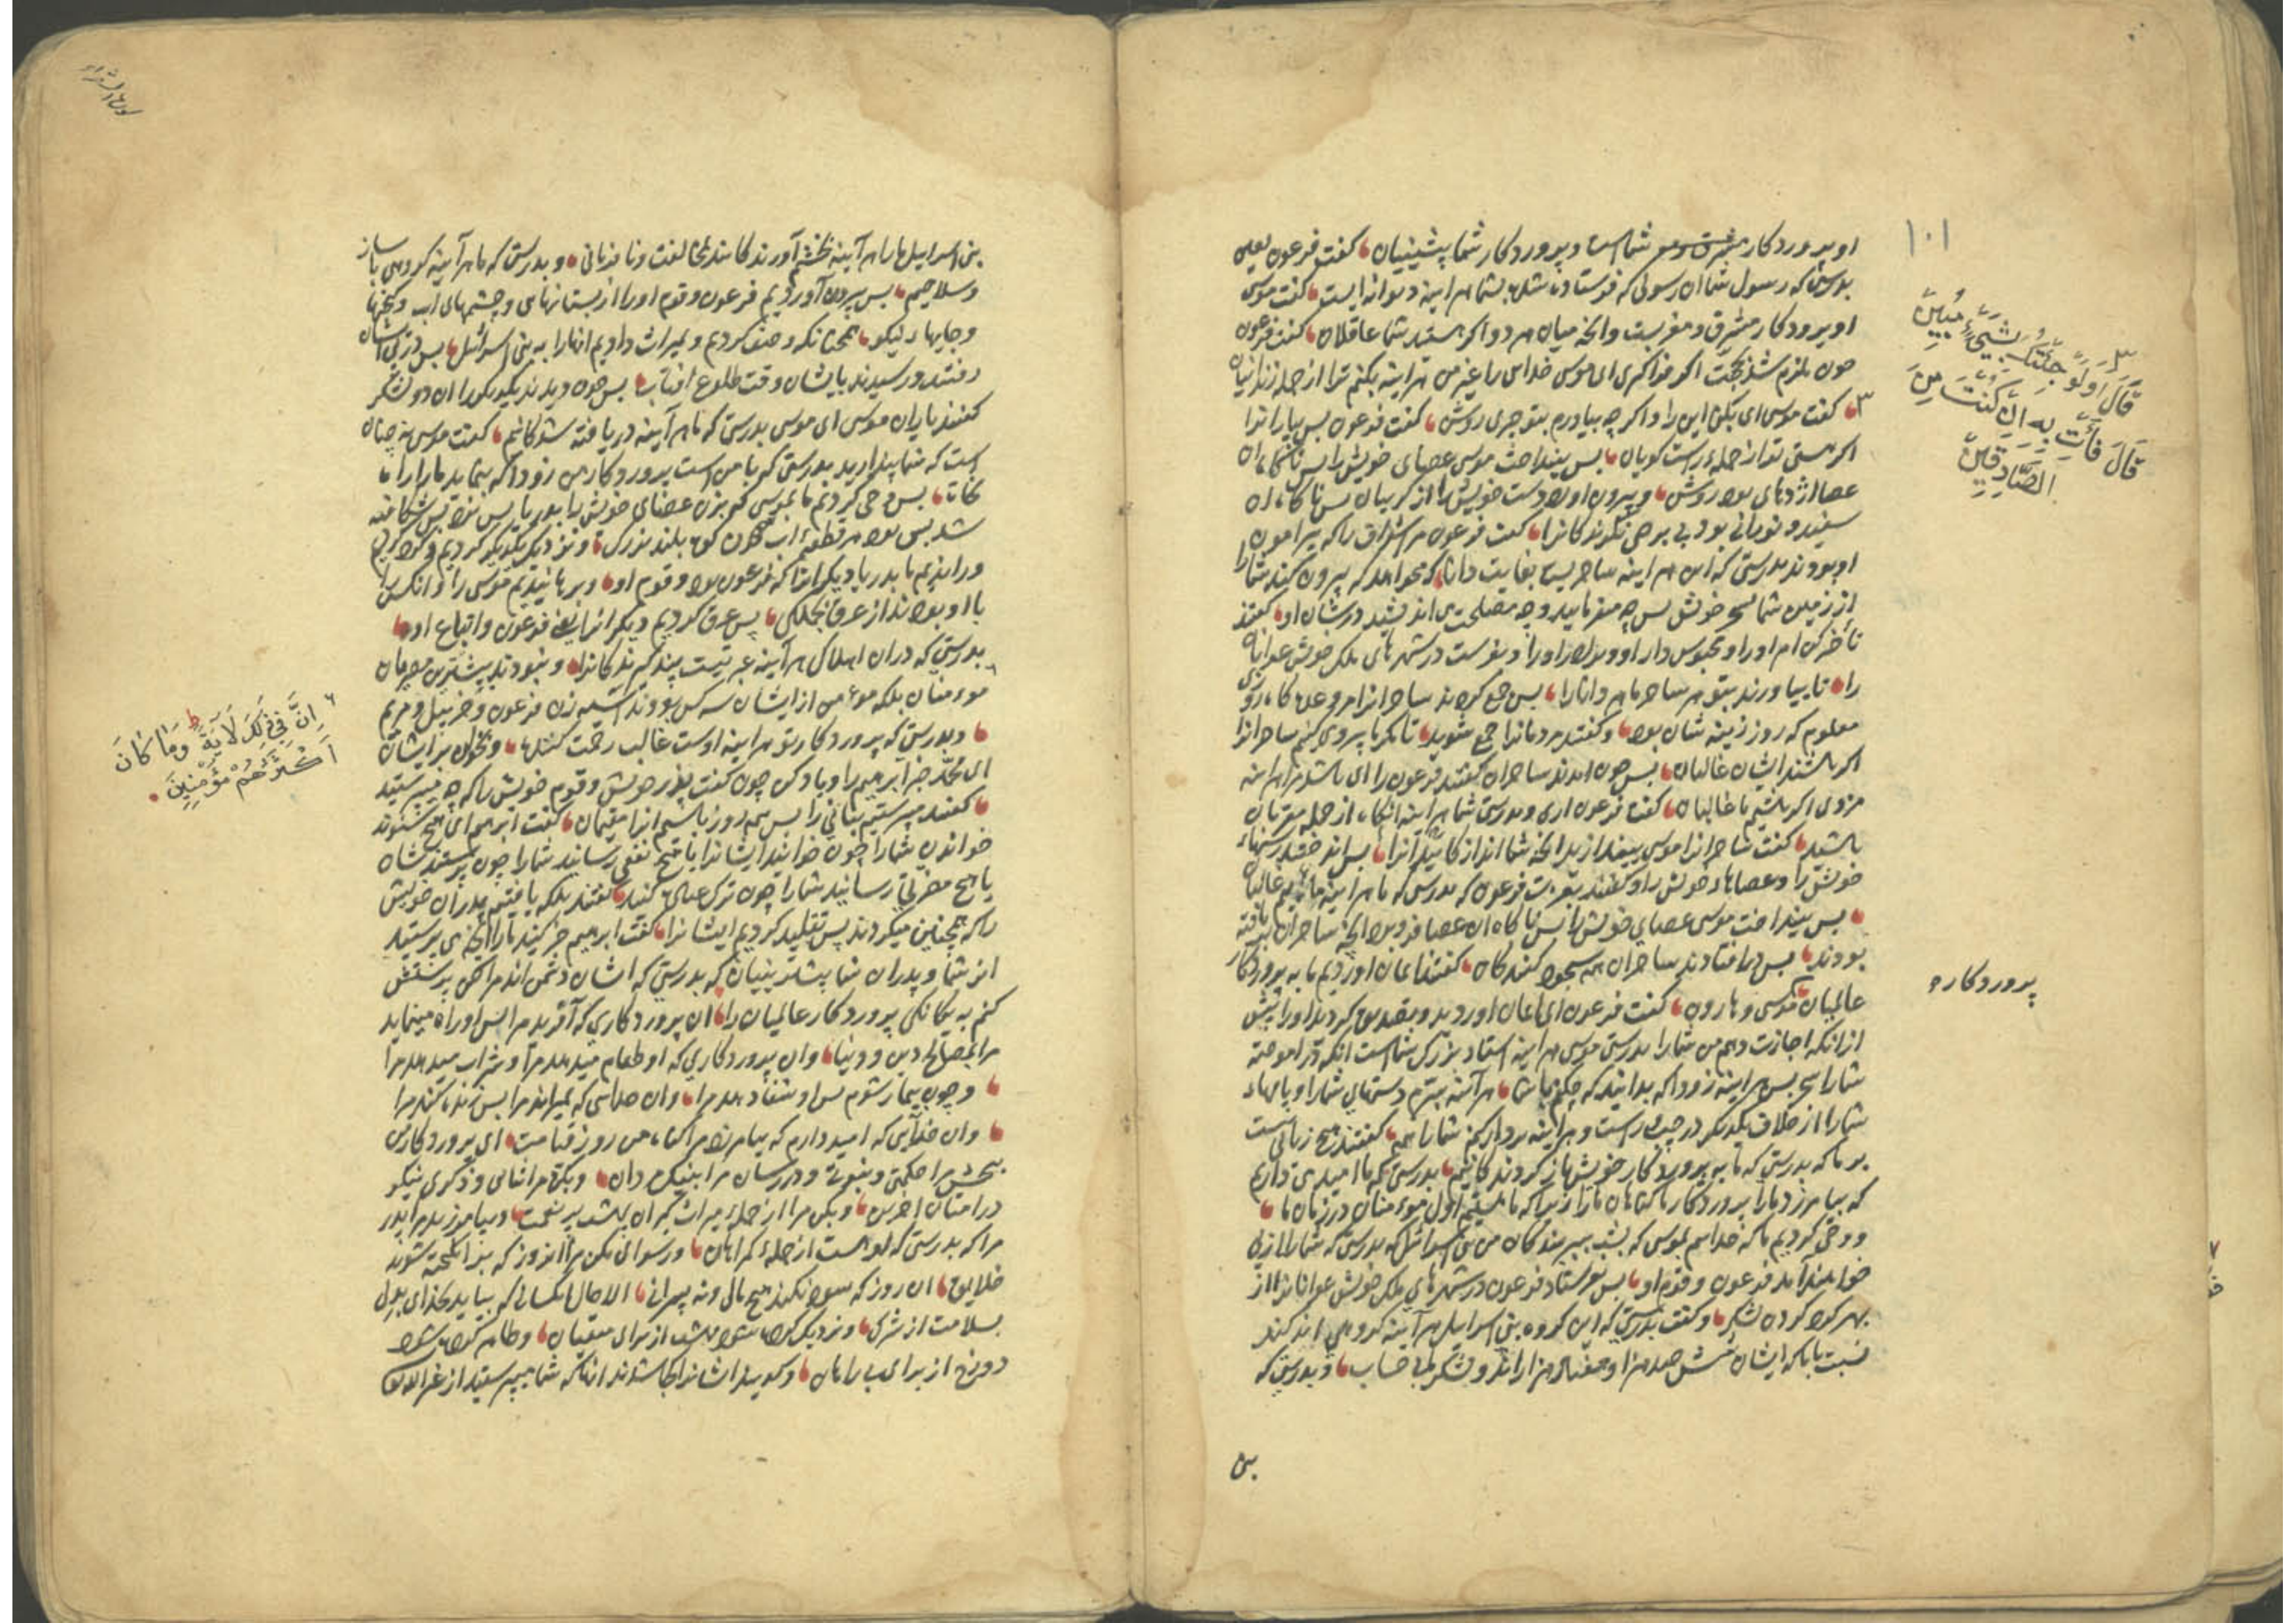 ۱۰۱
او پروردکار شماست و پروردکار شما پیشینیان کفت فرعون یعنی
بدرستی که رسول شما ان رسولی که فرستاده شد بشما هراینه دیوانه ایست کفت موسی
او پروردکار مشرق و مغربست وانچه میان هر دو اکر هستید شما عاقلان کفت فرعون
اکر فراکیری ای موسی خدای را غیر من هراینه بکنم ترا از جمله زندانیان
۳ کفت موسی ای بکنی این را و اکر چه بیاورم بتو چیزی روشن کفت فرعون پس بیار انرا
اکر هستی تو از جمله راست کویان پس بینداخت موسی عصای خویش را پس ناکاه ان
عصا اژدهای بود روشن و بیرون اورد دست خویش را از کریبان پس ناکاه ان
سفید و نورانی بود نکرندکانرا کفت فرعون مر اشراف را که پیرامون
او بودند بدرستی که این هراینه ساحریست بغایت دانا که میخواهد که بیرون کند شما را
از زمین شما بسحر خویش پس چه میفرمایید و چه مصلحت می اندیشید درشان او کفتند
تأخیر کن امر او را و محبوس دار او و برادر او را و بفرست در شهرهای ملک خویش
را تا بیاورند بتو هر ساحر ماهر دانا را پس جمع کرده شد ساحرانرا
معلوم که روز زینه شان بود و کفتند مردمانرا جمع شوید تا مکر ما پیروی کنیم ساحرانرا
اکر باشند ایشان غالبان پس چون امدند ساحران کفتند فرعون را ای باشد مرا هراینه
مزدی اکر باشیم ما غالبان کفت فرعون اری و بدرستی شما هراینه انکاه از جمله مقربان
باشید کفت ساحرانرا موسی بیندازید انچه شما اندازندکانید انرا پس انداختند رسنهاء
خویش را و عصاهاء خویش را و کفتند بعزت فرعون که بدرستی که ما هراینه غالبان
پس بینداخت موسی عصای خویش را پس ناکاه ان عصا فرو برد انچه ساحران
بودند پس درافتادند ساحران همه سجود کنندکان کفتند ایمان اوردیم ما به پروردکار
عالمیان موسی و هارون کفت فرعون ای ایمان اوردید و تصدیق کردید او را پیش
ازانکه اجازت دهم من شما را بدرستی موسی هراینه استاد بزرک شماست انکه در اموخته
شما را سحر پس هراینه زود اکه بدانید که چکنم با شما هرآینه ببرم دستهای شما را و پایهاء
شما را از خلاف یکدیکر در چپ و راست و هراینه بردار کنم شما را همه کفتند هیچ زیانی نیست
بر ما که بدرستی که ما به پروردکار خویش بازکردندکانیم بدرستی که ما امید می داریم
که بیامرزد ما را پروردکار ما کناهان ما را زیرا که ما هستیم اول مومنان در زمان ما
و وحی کردیم ما که خدایم بموسی که بشب ببر بندکان من بنی اسرائل که بدرستی که شما را از پی
خواهند امد فرعون و قوم او پس بفرستاد فرعون در شهرهای ملک خویش عوانانرا از
بهر کرد کردن لشکر و کفت بدرستی که این کروه بنی اسراییل هرآینه کروهی اندکند
نسبت با ما که ایشان شش صد هزار و هفتاد هزاراند و لشکر ما بی حساب و بدرستی که
بنی
۳ قَالَ اَوَلَوْ جِئْتُكَ بِشَيْءٍ مُبِينٍ
قَالَ فَأْتِ بِهِ اِنْ كُنْتَ مِنَ
الصَّادِقِينَ
پروردکار
سورة الشعراء
بنی اسراییل ما را هرآینه بخشم آورندکانند بمخالفت و نافرمانی و بدرستی که ما هرآینه کروهی با ساز
و سلاحیم پس بیرون آوردیم فرعون و قوم او را از بستانهای و چشمهای اب و کنجها
و جایهاء نیکو همچنانکه وصف کردیم و بمیراث دادیم انها را به بنی اسرائل پس در پی ایشان
رفتند و رسیدند بایشان وقت طلوع افتاب پس چون دیدند یکدیکر را ان دو لشکر
کفتند یاران موسی ای موسی بدرستی که ما هرآینه دریافته شدکانیم کفت موسی نه چنان
است که شما پندارید بدرستی که با من است پروردکار من زود اکه بنماید ما را راه
نجات پس وحی کردیم ما بموسی که بزن عصای خویش را بدریا پس بزد پس شکافته
شد پس بود هر قطعه اب چون کوه بلند بزرک و نزدیک یکدیکر کردیم و کرد کردیم
و راندیم ما بدریا دیکرانرا که فرعون بود و قوم او و برهانیدیم موسی را و انکس را
با او بود از غرق بجملکی پس غرق کردیم دیکرانرا یعنی فرعون و اتباع او
بدرستی که دران اهلاک هرآینه عبرتیست پندکیرندکانرا و نبودند بیشترین مصریان
مومنان بلکه مومن از ایشان سه کس بودند آسیه زن فرعون و خربیل و مریم
و بدرستی که پروردکار تو هراینه اوست غالب رحمت کننده و بخوان بر ایشان
ای محمد خبر ابرهیم را و یاد کن چون کفت پدر خویش و قوم خویش را که چه میپرستید
کفتند میپرستیم بتانی را پس همه روز باشیم انرا مقیمان کفت ابرهیم ای هیچ میشنوند
خواندن شما را چون خوانید ایشانرا یا هیچ نفعی رسانند شما را چون پرستیدشان
یا هیچ مضرتی رسانند شما را چون ترک عبادت کنید کفتند بلکه یافتیم پدران خویش
را که همچنین میکردند پس تقلید کردیم ایشانرا کفت ابرهیم خبر کنید مرا انچه می پرستید
از شما و پدران شما پیشتر بینیان که بدرستی که ایشان دشمن اند مرا لکن پرستش
کنم به یکانکی پروردکار عالمیان را ان پروردکاری که آفرید مرا پس او راه مینماید
مرا بمصالح دین و دنیا وان پروردکاری که او طعام میدهد مرا و شراب میدهد مرا
و چون بیمار شوم پس او شفا دهد مرا وان خدایی که بمیراند مرا پس زنده کند مرا
وان خدایی که امید دارم که بیامرزد مرا کناه من روز قیامت ای پروردکار من
ببخش مرا حکمتی و نبوت و در رسان مرا بنیک مردان و بکن مرا ثنای و ذکری نیکو
در امتان اخرین و بکن مرا از جمله میراث کیران بهشت پر نعمت و بیامرز پدر مرا
مرا که بدرستی که او هست از جمله کمراهان و رسوا مکن مرا انروز که برانکیخته شوند
خلایق ان روز که سود نکند هیچ مالی و نه پسرانی الا حال کسانی که بیاید بخدای بدل
بسلامت از شرک و نزدیک کرده شود بهشت از برای متقیان و ظاهر کرده شود
دوزخ از برای بی راهان و کویند ایشانرا کجا شدند انها که شما میپرستید از غیر الله
۶ اِنَّ فِي ذٰلِكَ لَآيَةً وَمَا كَانَ
اَكْثَرُهُمْ مُؤْمِنِينَ